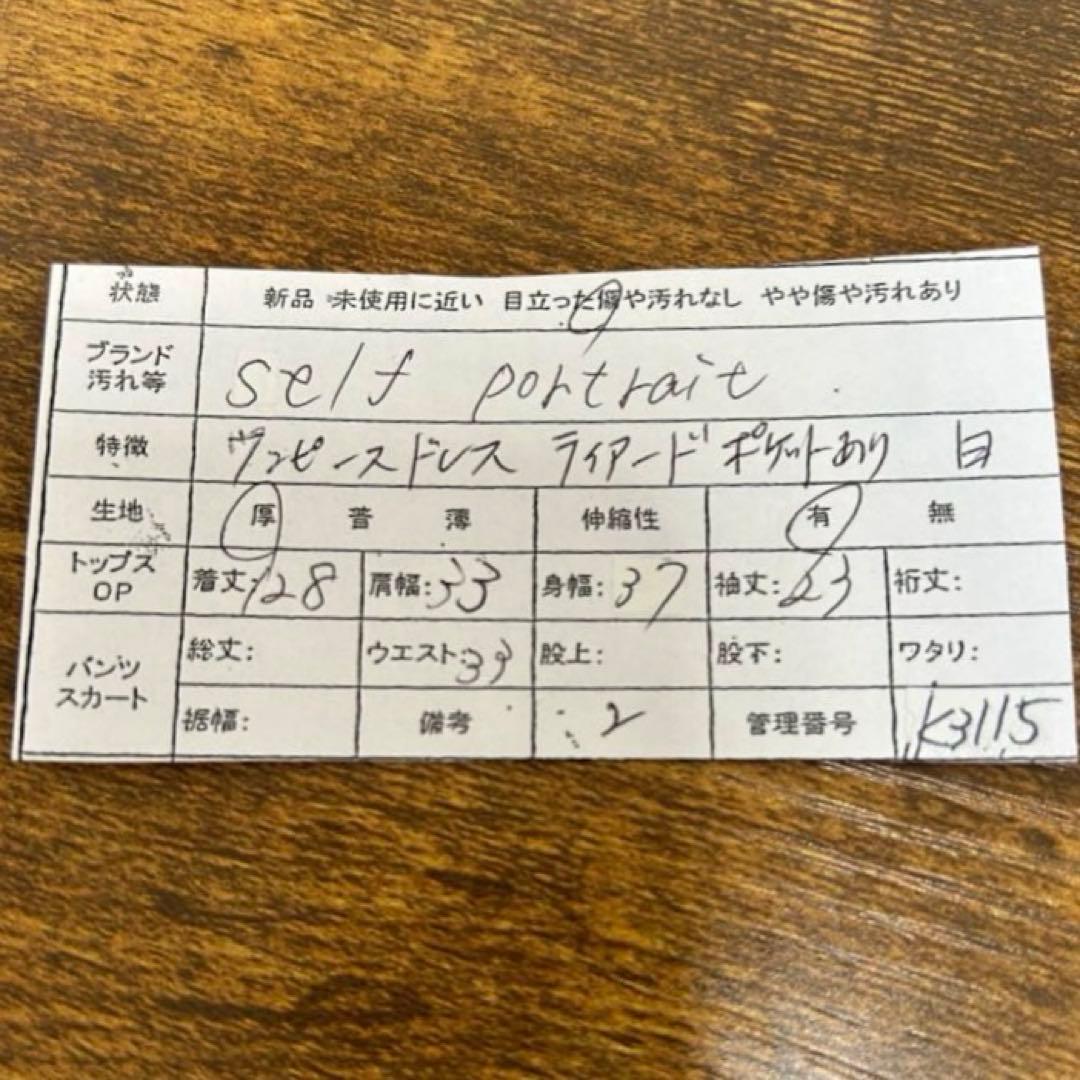 状態 新品 未使用に近い 目立った傷や汚れなし やや傷や汚れあり
ブランド
汚れ等 self portrait
特徴 ワンピースドレス ティアード ポケットあり 白
生地 厚 普 薄 伸縮性 有 無
トップス
OP 着丈:128 肩幅:33 身幅:37 袖丈:23 裄丈:
パンツ
スカート 総丈: ウエスト:33 股上: 股下: ワタリ:
裾幅: 備考 2 管理番号 K3115